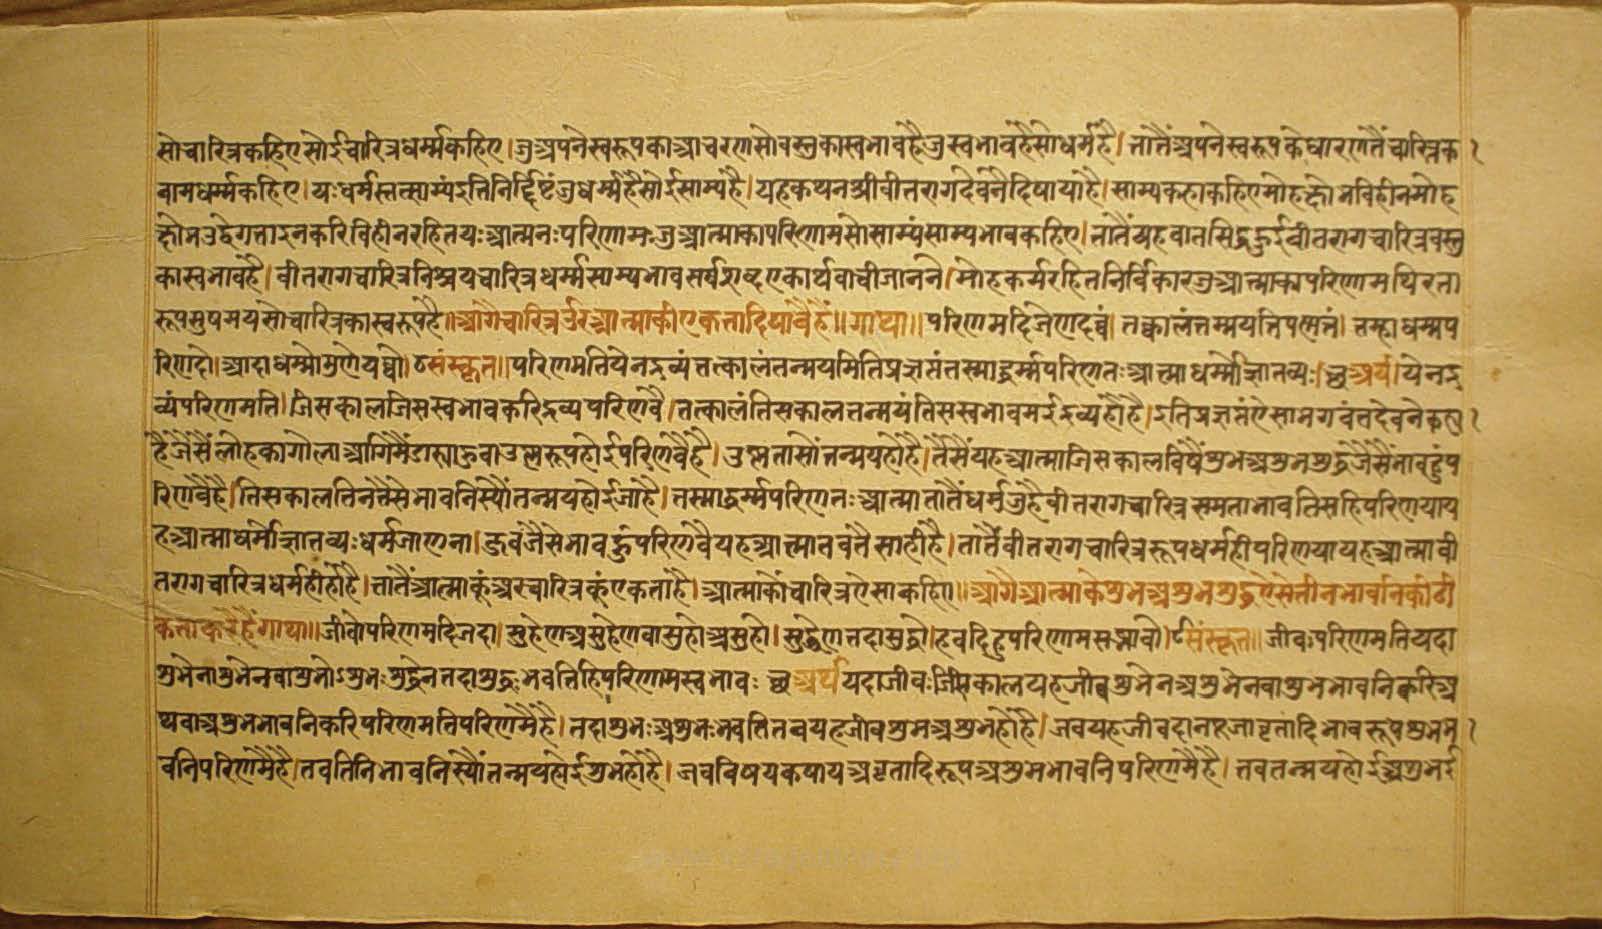 सोचारित्रकहिएसोईचारित्रधर्म्मकहिए।जुअपनेस्वरूपकाआचरणसोवस्तुकास्वभावहैजुस्वभावहैसोधर्महै।तातैंअपनेस्वरूपकेधारणतैंचारित्रक
वामधर्म्मकहिए।यःधर्मस्तत्साम्यंइतिनिर्द्दिष्टंजुधर्म्महैसोईसाम्यहै।यहकथनश्रीवीतरागदेवनैदिषायाहै।साम्यकहाकहिएमोहक्षोभविहीनमोह
क्षोभउद्वेगताइनकरिविहीनरहितयःआत्मनःपरिणामःजुआत्माकापरिणामसोसाम्यंसाम्यभावकहिए।तातैंयहवातसिद्धहुईवीतरागचारित्रवस्तु
कास्वभावहै।वीतरागचारित्रनिश्चयचारित्रधर्म्मसाम्यभावसर्वशब्दएकार्थवाचीजानने।मोहकर्मरहितनिर्विकारजुआत्माकापरिणामथिरता
रूपसुषमयसोचारित्रकास्वरूपहै॥आगैचारित्रअरआत्माकीएकतादिषांवैहैं॥गाथा॥परिणमदिजेणदव्वं।तक्कालंतम्मयत्तिपणत्तं।तम्हाधम्मप
रिणदो।आदाधम्मोमुणेयव्वो।८संस्कृत॥परिणमतियेनद्रव्यंतत्कालंतन्मयमितिप्रज्ञप्तंतस्माद्धर्म्मपरिणतःआत्माधर्म्मोज्ञातव्यः।८अर्थ।येनद्र
व्यंपरिणमति।जिसकालजिसस्वभावकरिद्रव्यपरिणवै।तत्कालंतिसकालतन्मयंतिसस्वभावमईद्रव्यहौहै।इतिप्रज्ञप्तंऐसाभगवंतदेवनेकह्या
हैजैसैंलोहकागोलाआगिमैंडाल्याहुवाउष्णरूपहोईपरिणवैहै।उष्णतासोंतन्मयहौहै।तैसैंयहआत्माजिसकालविषैंशुभअशुभशुद्धजैसैंभावहुंप
रिणवैहै।तिसकालतिनतैसेभावनिस्यौंतन्मयहोईजाहै।तस्माद्धर्म्मपरिणतःआत्मातातैंधर्मजुहैवीतरागचारित्रसमताभावतिसहिपरिणयाय
हआत्माधर्मोज्ञातव्यःधर्मजाणना।जवजैसेभावहुंपरिणवैयहआत्मातवतैसाहीहै।तातैंवीतरागचारित्ररूपधर्महीपरिणयायहआत्मावी
तरागचारित्रधर्महीहौहै।तातैंआत्माकूंअरचारित्रकूंएकताहै।आत्माकोंचारित्रऐसाकहिए॥आगैआत्माकेशुभअशुभशुद्धऐसेतीनभावनिकीठी
कताकरैहैंगाथा॥जीवोपरिणमदिजदा।सुहेणअसुहेणवासुहोअसुहो।सुद्धेणतदासुद्धो।हवदिहुपरिणामसब्भावो।९संस्कृत॥जीवःपरिणमतियदा
शुभेनाशुभेनवाशुभोऽशुभःशुद्धेनतदाशुद्धःभवतिहिपरिणामस्वभावः९अर्थयदाजीवःजिसकालयहजीवशुभेनअशुभेनवाशुभभावनिकरिअ
थवाअशुभभावनिकरिपरिणमतिपरिणमैहै।तदाशुभःअशुभःभवतितवयहजीवशुभअशुभहौहै।जवयहजीवदानपूजावृतादिभावरूपशुभभा
वनिपरिणमैहै।तवतिनिभावनिस्यौंतन्मयहोईशुभहौहै।जवविषयकषायअवृतादिरूपअशुभभावनिपरिणमैहै।तवतन्मयहोईअशुभई